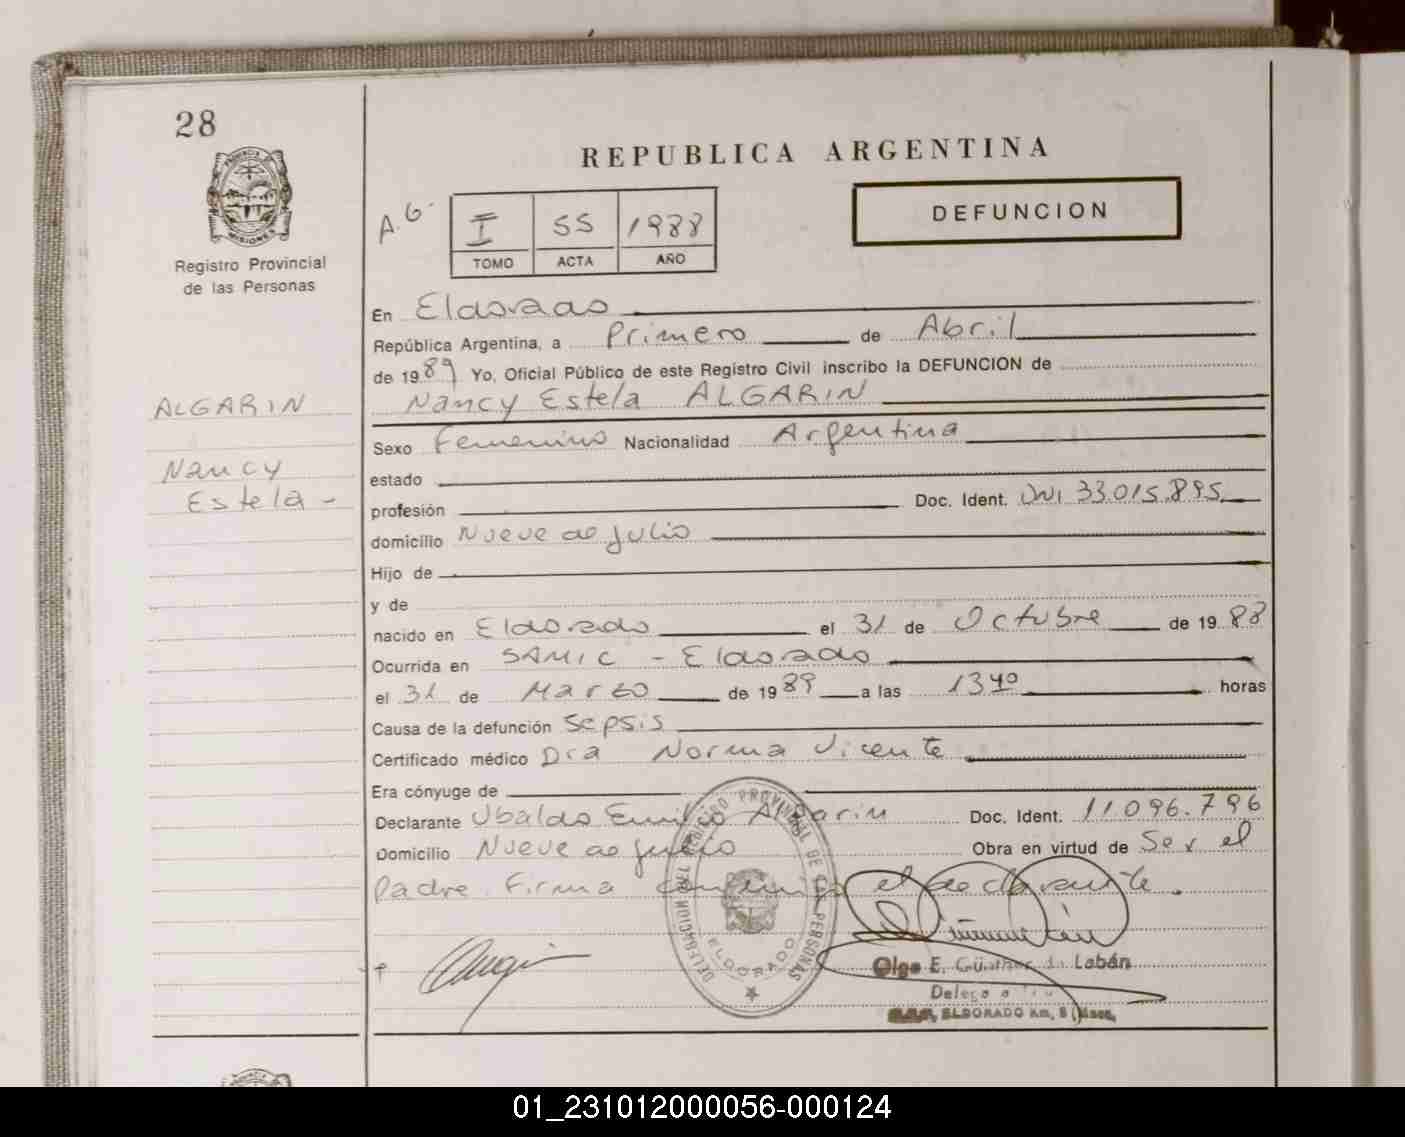 28
PROVINCIA DE
MISIONES
Registro Provincial
de las Personas
REPUBLICA ARGENTINA
A.G.
I 55 1988
TOMO ACTA AÑO
DEFUNCION
En Eldorado
República Argentina, a Primero de Abril
de 1989 Yo, Oficial Público de este Registro Civil inscribo la DEFUNCION de
ALGARIN Nancy Estela ALGARIN
Sexo Femenino Nacionalidad Argentina
Nancy
estado
Estela -
profesión Doc. Ident. DNI 33.015.895
domicilio Nueve de julio
Hijo de
y de
nacido en Eldorado el 31 de Octubre de 1988
Ocurrida en SAMIC - Eldorado
el 31 de Marzo de 1989 a las 13 40 horas
Causa de la defunción Sepsis
Certificado médico Dra Norma Vicente
Era cónyuge de
Declarante Ubaldo Emilio Algarin Doc. Ident. 11.096.796
Domicilio Nueve de julio Obra en virtud de Ser el
Padre. Firma conmigo el declarante.
DELEGACION DEL REGISTRO PROVINCIAL DE LAS PERSONAS
ELDORADO
Olga E. Günther de Labán
ELDORADO Km.
01_231012000056-000124